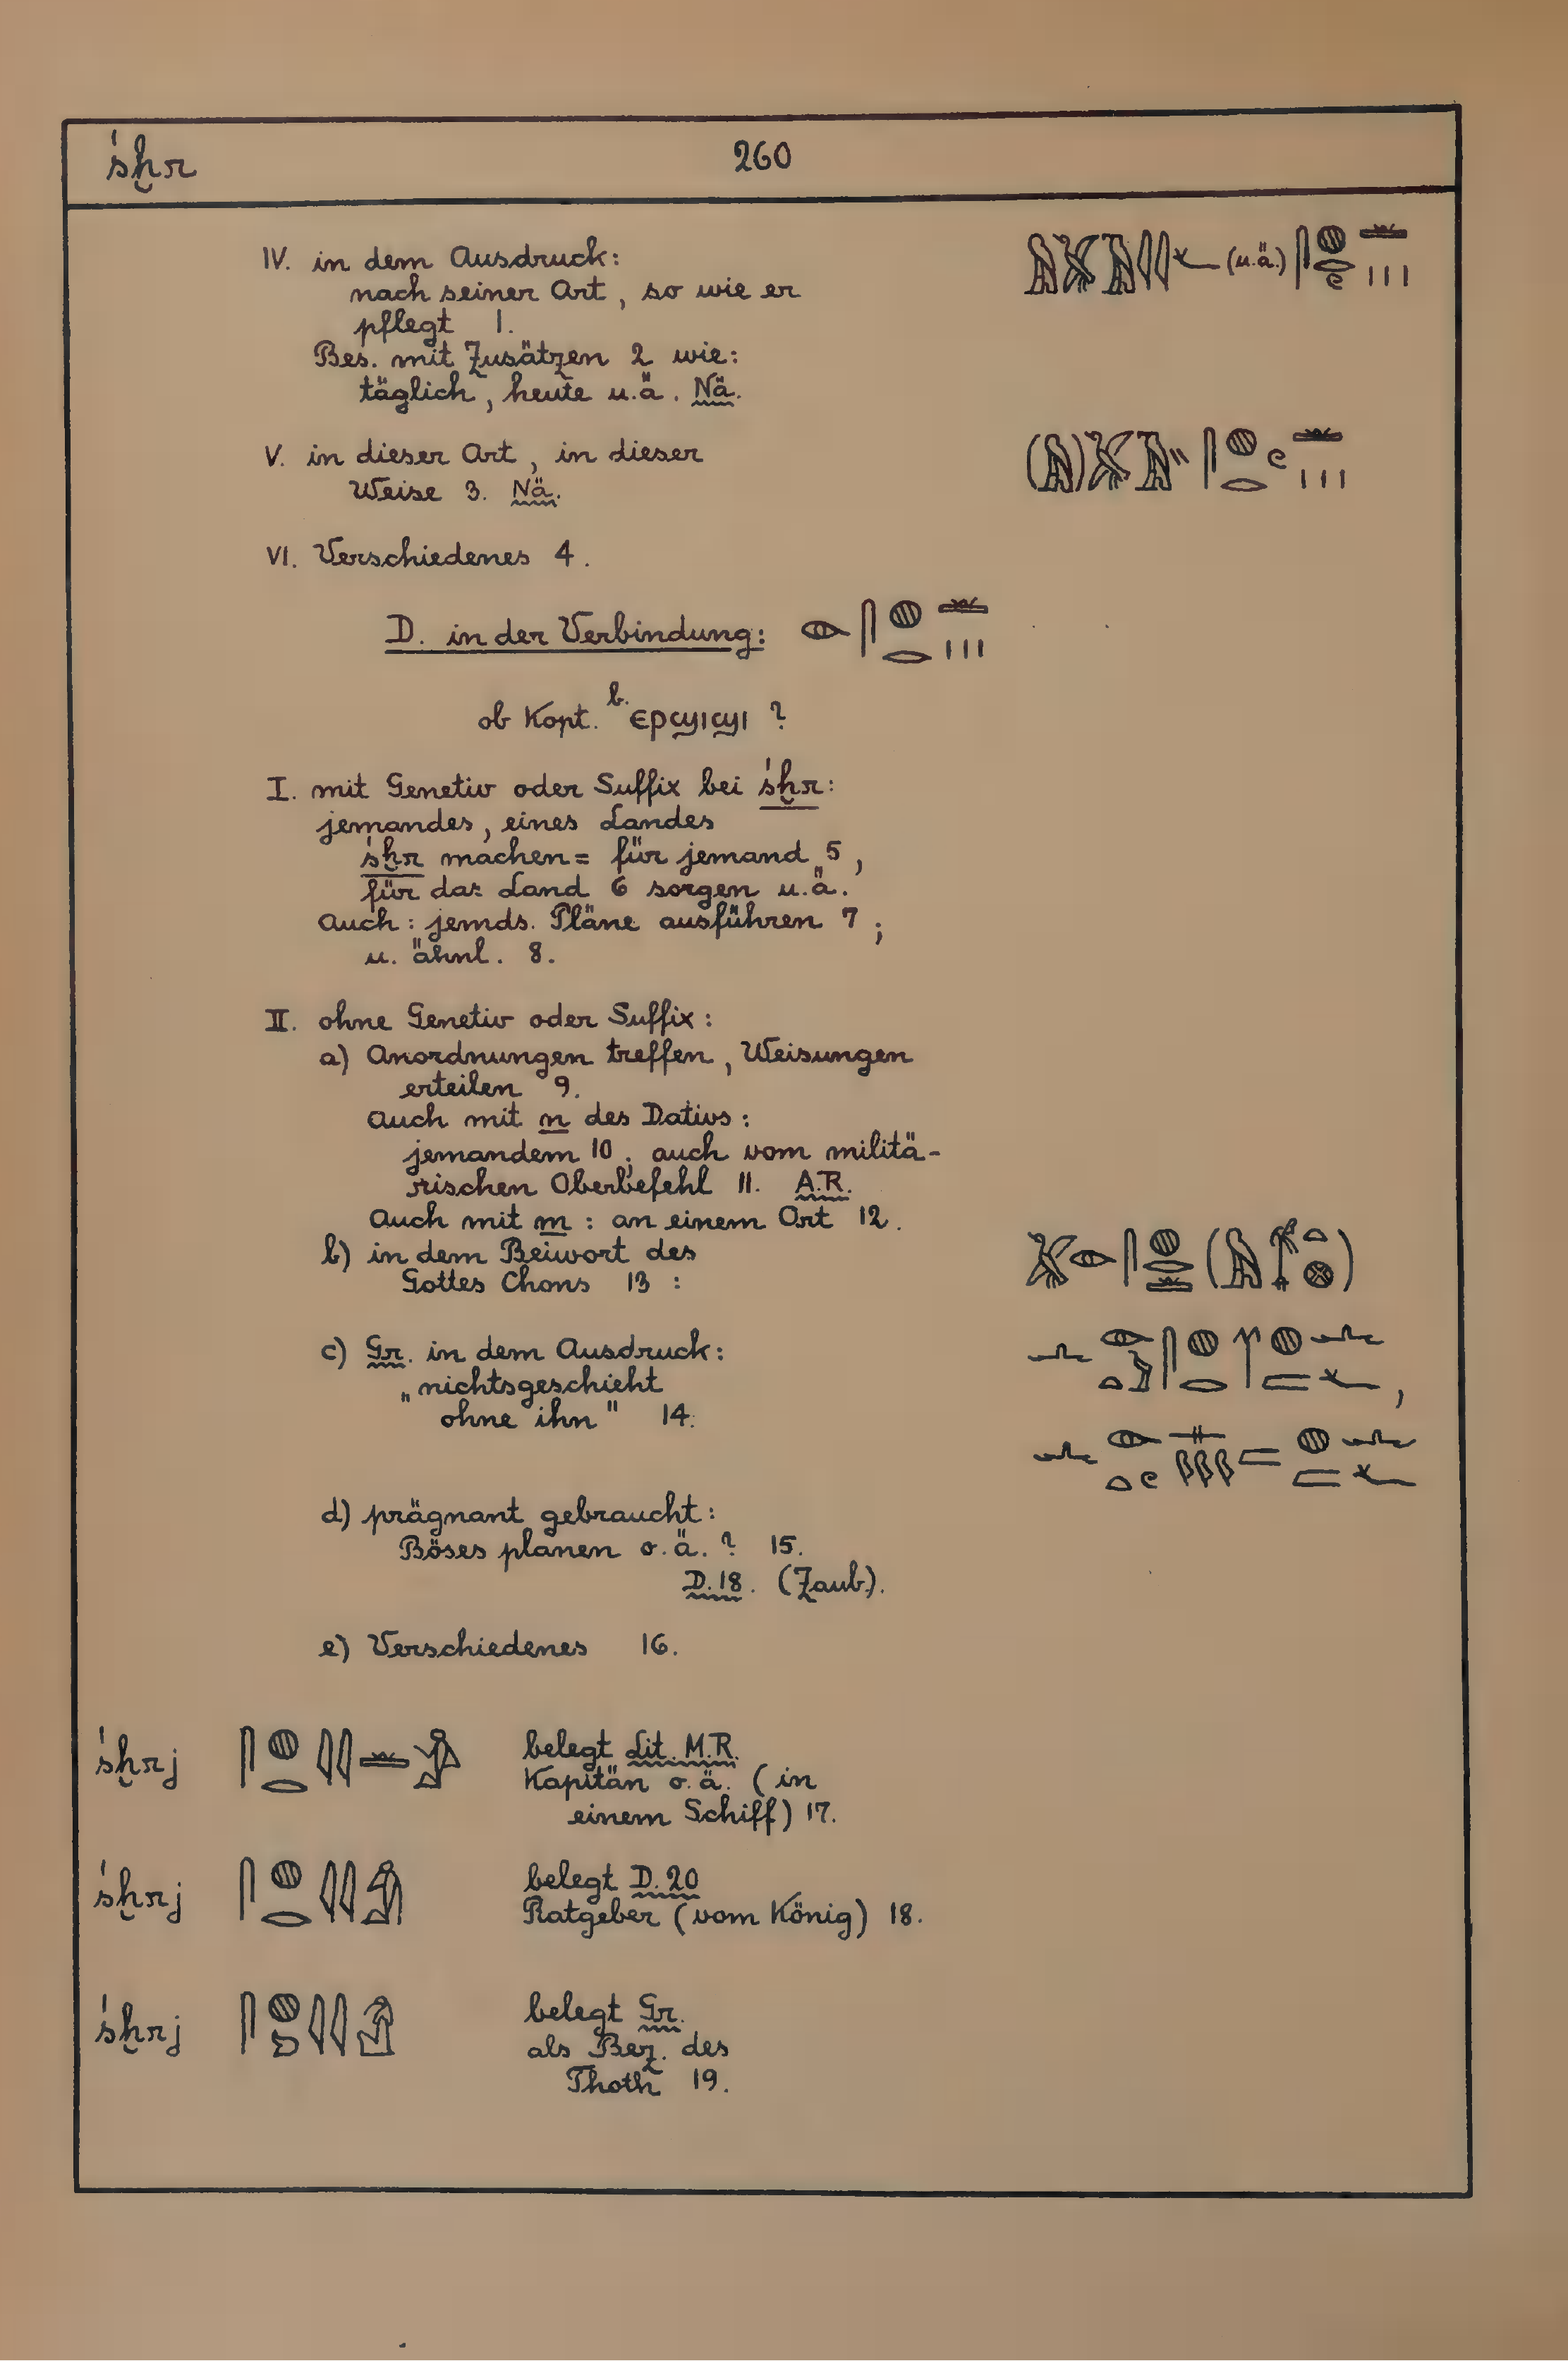 śḫr 260
IV. in dem Ausdruck: (u.ä.)
nach seiner Art, so wie er
pflegt 1.
Bes. mit Zusätzen 2 wie:
täglich, heute u.ä. Nä.
V. in dieser Art, in dieser
Weise 3. Nä.
VI. Verschiedenes 4.
D. in der Verbindung:
ob Kopt. b. ⲉⲣϣⲓϣⲓ ?
I. mit Genetiv oder Suffix bei śḫr:
jemandes, eines Landes
śḫr machen = für jemand 5,
für das Land 6 sorgen u.ä.
Auch: jemds. Pläne ausführen 7;
u. ähnl. 8.
II. ohne Genetiv oder Suffix:
a) Anordnungen treffen, Weisungen
erteilen 9.
Auch mit n des Dativs:
jemandem 10; auch vom militä-
rischen Oberbefehl 11. A.R.
Auch mit m: an einem Ort 12.
b) in dem Beiwort des
Gottes Chons 13:
c) Gr. in dem Ausdruck:
„nichts geschieht
ohne ihn" 14.
d) prägnant gebraucht:
Böses planen o.ä.? 15.
D.18. (Zaub.).
e) Verschiedenes 16.
śḫrj belegt Lit. M.R.
Kapitän o.ä. (in
einem Schiff) 17.
śḫrj belegt D. 20
Ratgeber (vom König) 18.
śḫrj belegt Gr.
als Bez. des
Thoth 19.